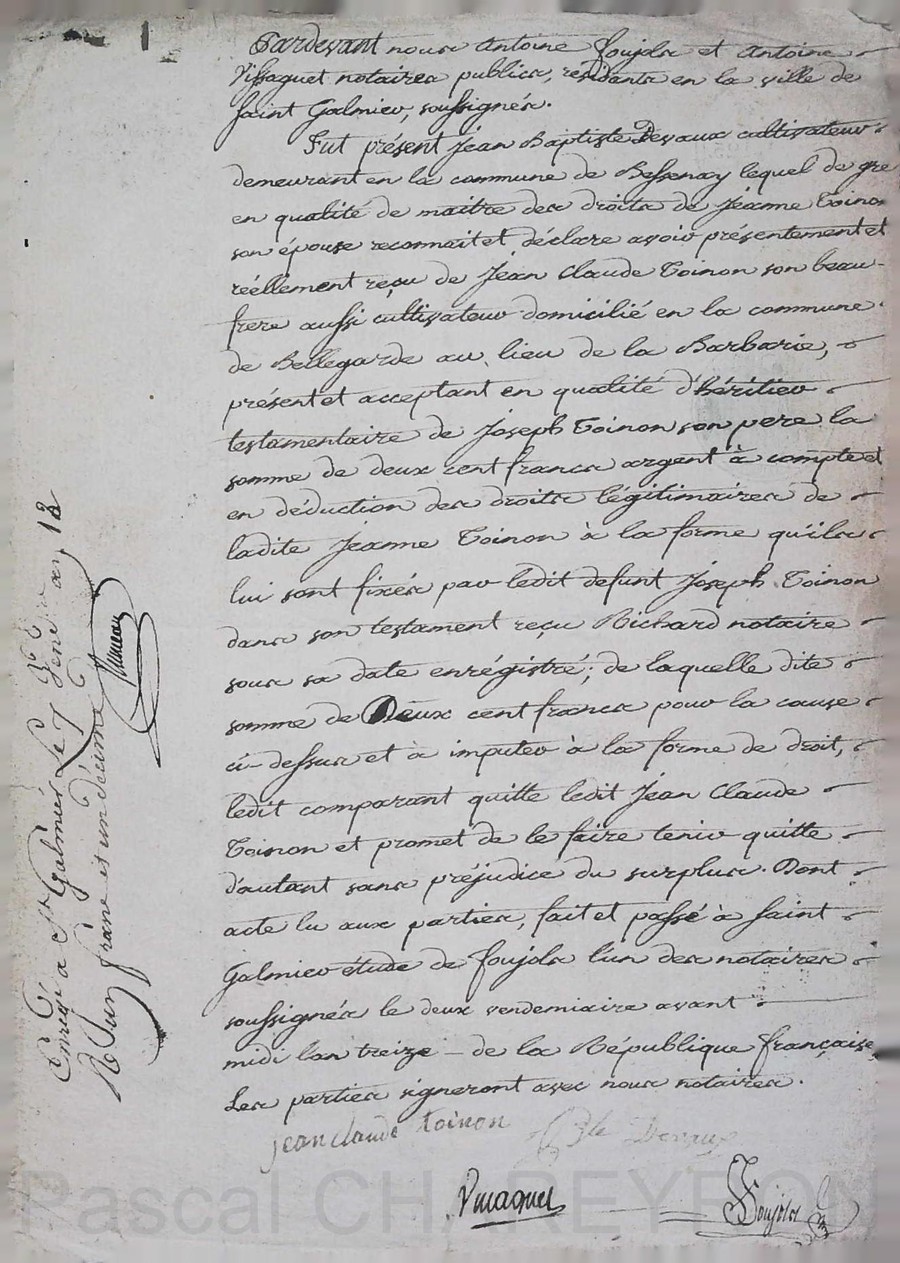 Pardevant nous Antoine Foujols et Antoine
Vissaguet notaires publics, résidants en la ville de
Saint Galmier, soussignés.
Fut présent Jean Baptiste Devaux cultivateur
demeurant en la commune de Bessenay lequel de gré
en qualité de maitre des droits de Jeanne Toinon
son épouse reconnait et déclare avoir présentement et
réellement reçu de Jean Claude Toinon son beau-
frere aussi cultivateur domicilié en la commune
de Bellegarde au lieu de la Barbarie,
présent et acceptant en qualité d'héritier
testamentaire de Joseph Toinon son pere la
somme de deux cent francs argent à compte et
en déduction des droits légitimaires de
ladite Jeanne Toinon à la forme qu'ils
lui sont fixés par ledit defunt Joseph Toinon
dans son testament reçu Richard notaire
sous sa date enrégistré; de laquelle dite
somme de Deux cent francs pour la cause
ci-dessus et à imputer à la forme de droit,
ledit comparant quitte ledit Jean Claude
Toinon et promet de le faire tenir quitte
d'autant sans préjudice du surplus. Dont
acte lu aux parties, fait et passé à Saint
Galmier étude de Foujols l'un des notaires
soussignés le deux vendemiaire avant
midi l'an treize de la République française
Les parties signeront avec nous notaires.
jean claude toinon Bte Devaux
Vissaguet Foujols
Enrégé a St Galmier Le 7 vendre an 13
R un franc et un décime
Pascal CHAREYRON